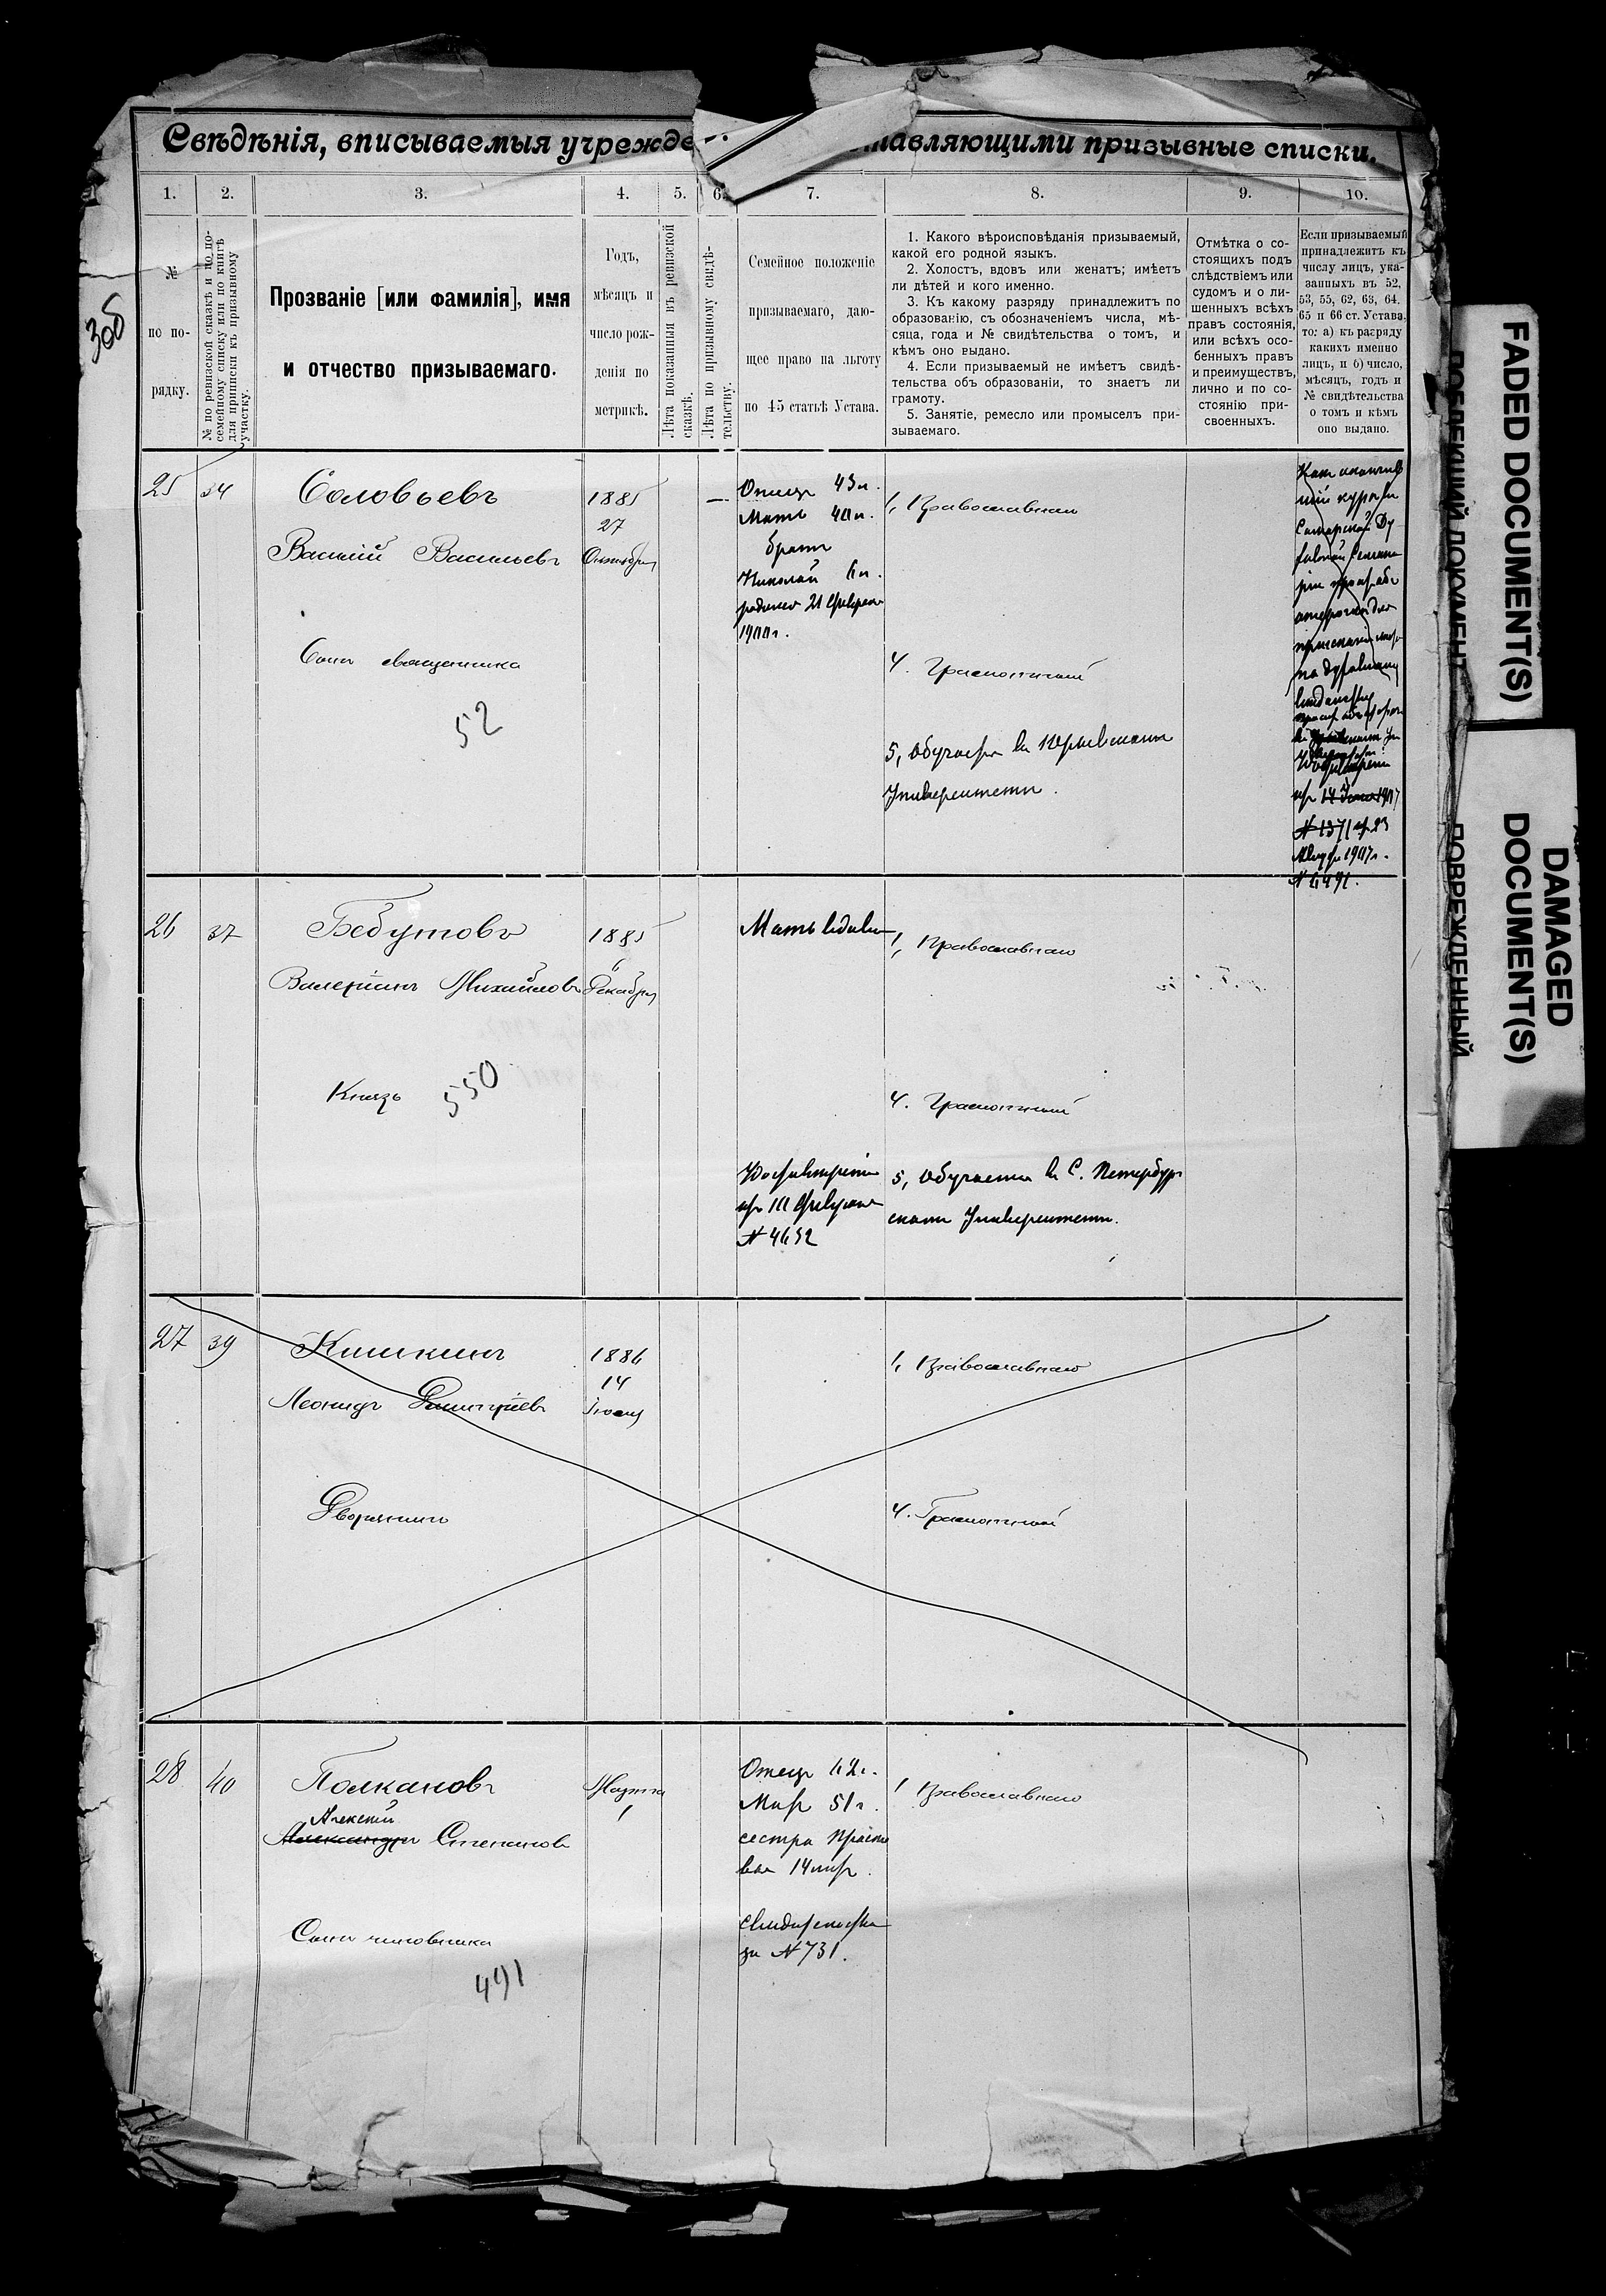 Свѣдѣнія, вписываемыя учрежде
тавляющими призывные списки.
1. 2. 3. 4. 5. 6. 7. 8. 9. 10.
№
по по-
рядку.
№ по ревизской сказкѣ и по по-
семейному списку или по книгѣ
для приписки къ призывному
участку.
Прозваніе [или фамилія], имя
и отчество призываемаго.
Годъ,
мѣсяцъ и
число рож-
денія по
метрикѣ.
Лѣта показанныя въ ревизской
сказкѣ.
Лѣта по призывному свидѣ-
тельству.
Семейное положеніе
призываемаго, даю-
щее право на льготу
по 45 статьѣ Устава.
1. Какого вѣроисповѣданія призываемый,
какой его родной языкъ.
2. Холостъ, вдовъ или женатъ; имѣетъ
ли дѣтей и кого именно.
3. Къ какому разряду принадлежитъ по
образованію, съ обозначеніемъ числа, мѣ-
сяца, года и № свидѣтельства о томъ, и
кѣмъ оно выдано.
4. Если призываемый не имѣетъ свидѣ-
тельства объ образованіи, то знаетъ ли
грамоту.
5. Занятіе, ремесло или промыселъ при-
зываемаго.
Отмѣтка о со-
стоящихъ подъ
слѣдствіемъ или
судомъ и о ли-
шенныхъ всѣхъ
правъ состоянія,
или всѣхъ осо-
бенныхъ правъ
и преимуществъ,
лично и по со-
стоянію при-
своенныхъ.
Если призываемый
принадлежитъ къ
числу лицъ, ука-
занныхъ въ 52,
53, 55, 62, 63, 64.
65 и 66 ст. Устава.
то: а) къ разряду
какихъ именно
лицъ, и б) число,
мѣсяцъ, годъ и
№ свидѣтельства
о томъ и кѣмъ
оно выдано.
25 34 Соловьевъ
Василій Васильевъ
Сынъ священника
52
1885
27
Октября
—
Отецъ 43 л.
Мать 40 л.
братъ
Николай 6 л.
родился 21 Февраля
1900 г.
1, Православнаго
4. Грамотный
5, Обучается въ Юрьевскомъ
Университетѣ.
26 37 Бебутовъ
Валеріанъ Михайловъ
Князь
550
1885
6
Декабря
Мать вдова
№ 4652
1, Православнаго
4. Грамотный
5, Обучается въ С. Петербург
скомъ Университетѣ.
27 39 Кишкинъ
Леонидъ Дмитріевъ
Дворянинъ
1886
14
Іюля
1, Православнаго
4. Грамотный
28 40 Полкановъ
Алексѣй
Александръ Степановъ
Сынъ чиновника
491
Марта
1
Отецъ 62 г.
Мать 51 г.
сестра Праско
вья 14 лѣтъ.
за № 731.
1 Православнаго
FADED DOCUMENT(S)
ДОКУМЕНТ
DAMAGED
DOCUMENT(S)
ПОВРЕЖДЕННЫЙ